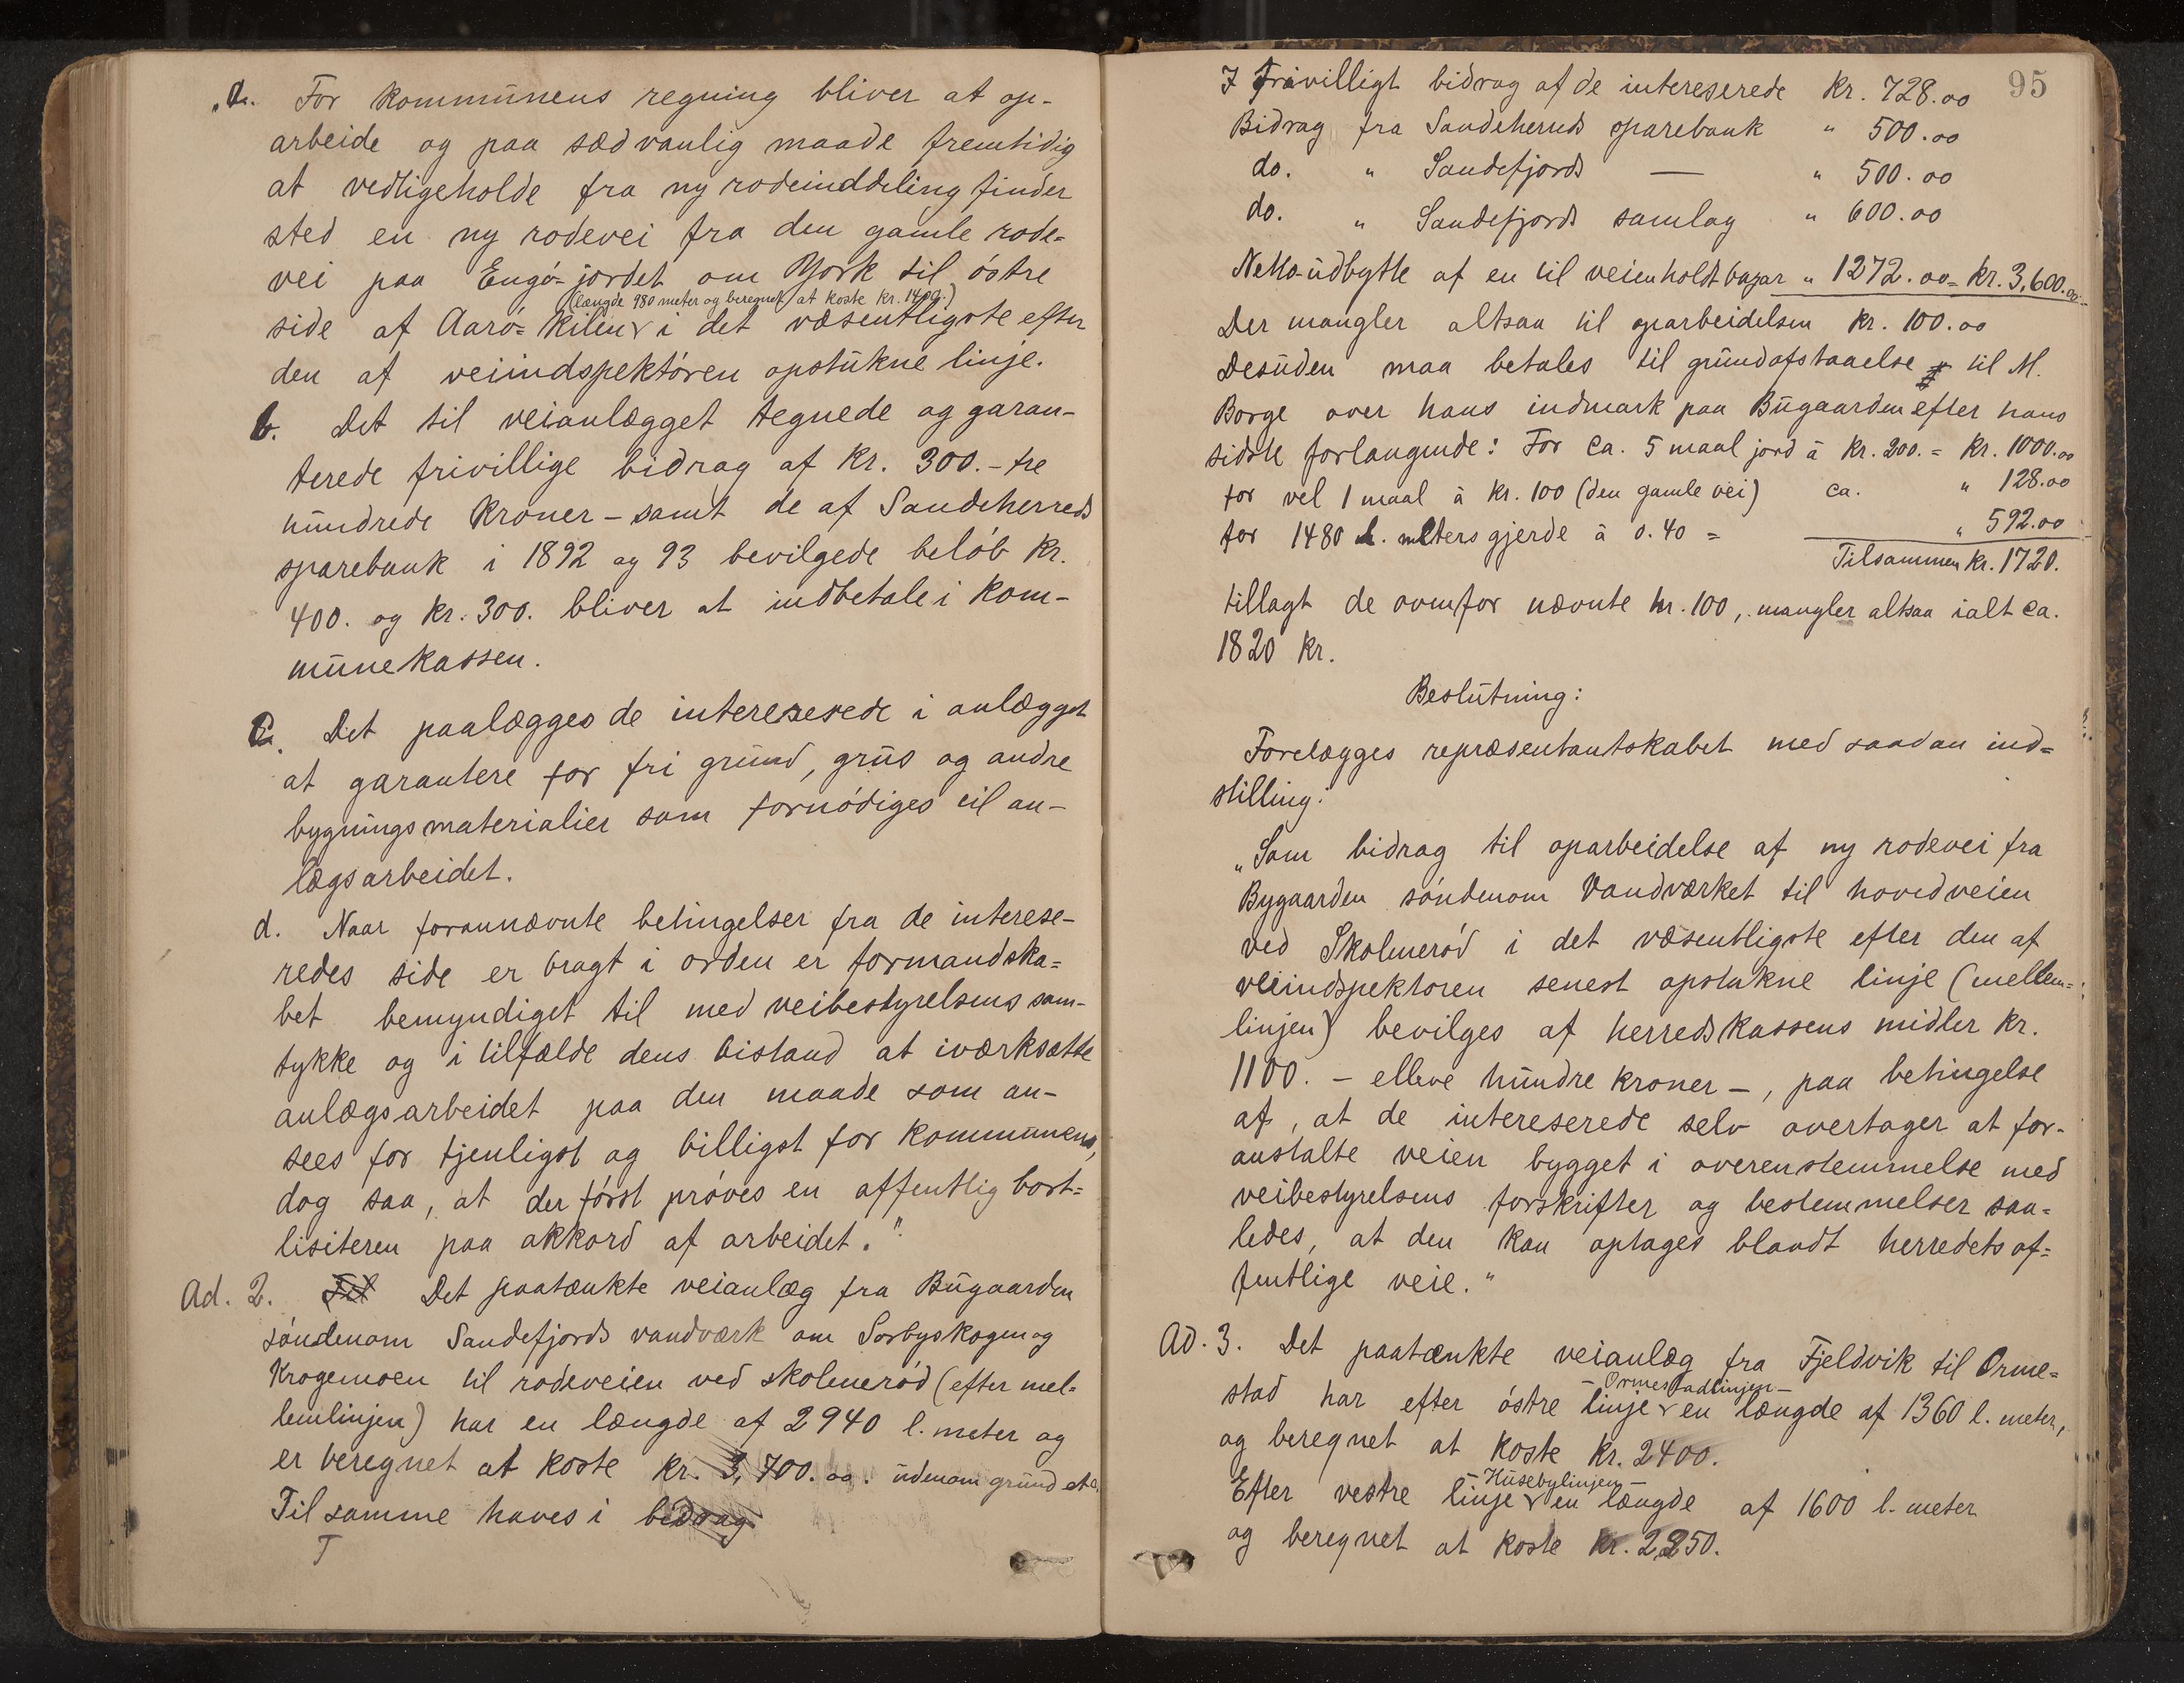 „a. For kommunens regning bliver at op-
arbeide og paa sædvanlig maade fremtidig
at vedligeholde fra ny rodeinddeling finder
sted en ny rodevei fra den gamle rode=
vei paa Engø-jordet om York til østre
(længde 980 meter og beregnet at koste kr. 1400.)
side af Aarø=kilen i det væsentligste efter
den af veiindspektøren opstukne linje.
b. Det til veianlægget tegnede og garan-
terede frivillige bidrag af kr. 300.- tre
hundrede kroner - samt de af Sandeherreds
sparebank i 1892 og 93 bevilgede beløb kr.
400. og kr. 300. bliver at indbetale i kom-
munekassen.
c. Det paalægges de intereserede i anlægget
at garantere for fri grund, grus og andre
bygningsmaterialier som fornødiges til an-
lægsarbeidet.
d. Naar forannævnte betingelser fra de interese-
redes side er bragt i orden er formandska=
bet bemyndiget til med veibestyrelsens sam-
tykke og i tilfælde dens bistand at iværksætte
anlægsarbeidet paa den maade som an-
sees for tjenligst og billigst for kommunen,
dog saa, at der først prøves en offentlig bort=
lisiteren paa akkord af arbeidet."
Ad. 2. Det paatænkte veianlæg fra Bugaarden
søndenom Sandefjords vandværk om Sorbyskogen og
Krogemoen til rodeveien ved skolmerød (efter mel=
lemlinjen) har en længde af 2940 l. meter og
er beregnet at koste kr. 3,700.00. udenom grund etc.
Til samme haves i bidrag
95
I frivilligt bidrag af de intereserede kr. 728.00
Bidrag fra Sandeherreds sparebank " 500.00
do. " Sandefjords — " 500.00
do. " Sandefjords samlag " 600.00
Nettoudbytte af en til veien holdt bazar " 1272.00= kr. 3,600.00
Der mangler altsaa til oparbeidelsen kr. 100.00
Desuden maa betales til grundafstaaelse til M.
Borge over hans indmark paa Bugaarden efter hans
sidste forlangende: For ca. 5 maal jord à kr. 200. = kr. 1000.00
for vel 1 maal à kr. 100 (den gamle vei) ca. " 128.00
for 1480 l. meters gjerde à 0.40 = " 592.00
Tilsammen kr. 1720.
tillagt de ovenfor nævnte kr. 100, mangler altsaa ialt ca.
1820 kr.
Beslutning:
Forelægges repræsentantskabet med saadan ind=
stilling:
„Som bidrag til oparbeidelse af ny rodevei fra
Bygaarden søndenom Vandværket til hovedveien
ved Skolmerød i det væsentligste efter den af
veiindspektoren senest opstukne linje (mellem=
linjen) bevilges af herredskassens midler kr.
1100. - elleve hundre kroner -, paa betingelse
af, at de intereserede selv overtager at for-
anstalte veien bygget i overenstemmelse med
veibestyrelsens forskrifter og bestemmelser saa=
ledes, at den kan optages blandt herredets of=
fentlige veie."
Ad. 3. Det paatænkte veianlæg fra Fjeldvik til Orme=
- Ormestadlinjen -
stad har efter østre linje en længde af 1360 l. meter,
og beregnet at koste kr. 2400.
- Husebylinjen -
Efter vestre linje en længde af 1600 l. meter
og beregnet at koste kr. 2250.